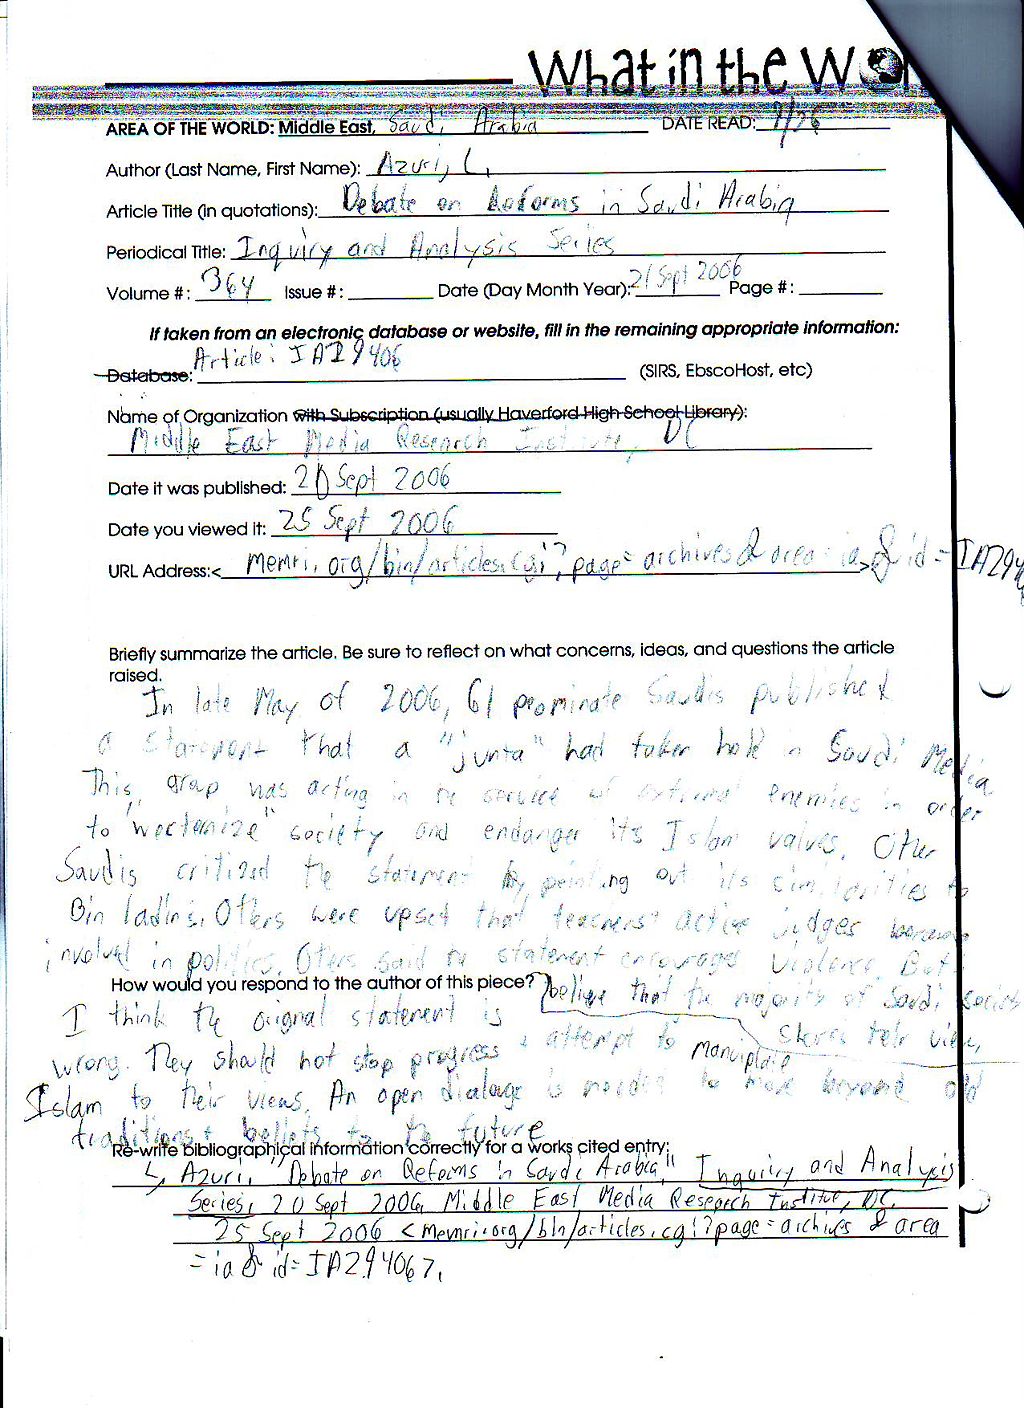 What in the Wor
AREA OF THE WORLD: Middle East, Saudi Arabia DATE READ: 9/26
Author (Last Name, First Name): Azuri, L,
Article Title (in quotations): Debate on Reforms in Saudi Arabia
Periodical Title: Inquiry and Analysis Series
Volume #: 364 Issue #: Date (Day Month Year): 21 Sept 2006 Page #:
If taken from an electronic database or website, fill in the remaining appropriate information:
Article: IA29406
Database: (SIRS, EbscoHost, etc)
Name of Organization with Subscription (usually Haverford High School Library):
Middle East Media Research Institute, DC
Date it was published: 20 Sept 2006
Date you viewed it: 25 Sept 2006
URL Address:< memri.org/bin/articles.cgi?page=archives&area=ia>&id=IA2940
Briefly summarize the article. Be sure to reflect on what concerns, ideas, and questions the article
raised.
In late May of 2006, 61 prominate Saudis published
a statement that a "junta" had taken hold in Saudi Media
This group was acting in the service of external enemies in order
to "westernize" society and endanger its Islam values. Other
Saudis critized the statement by pointing out its similarities to
Bin ladin's. Others were upset that teachers active judges
involved in politics. Others said the statement encourages violence. But
How would you respond to the author of this piece? believe that the majority of Saudi society
I think the orignal statement is shares their view.
wrong. They should not stop progress attempt to manuiplate
Islam to their views. An open dialouge is needed to move beyond old
traditions + beliefs to the future
Re-write bibliographical information correctly for a works cited entry:
L, Azuri, "Debate on Reforms in Saudi Arabia" Inquiry and Analysis
Series, 20 Sept 2006, Middle East Media Research Institue, DC,
25 Sept 2006 <memri.org/bin/articles.cgi?page=archives & area
=ia & id=IA29406>.